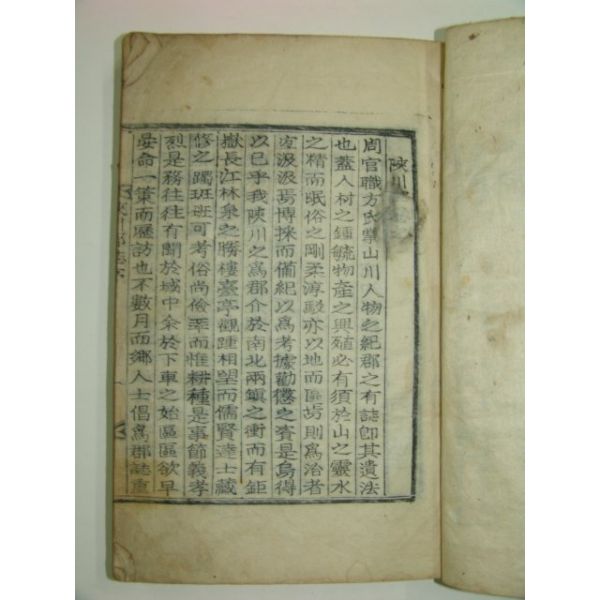 陜川
周官職方氏掌山川人物之紀郡之有誌卽其遺法
也蓋人材之鍾毓物產之興殖必有須於山之靈水
之精而民俗之剛柔淳駁亦以地而區焉則爲治者
汲汲焉博採而備紀以爲考據勸懲之資是烏得
以已乎我陜川之爲郡介於南北兩鎭之衝而有鉅
嶽長江林泉之勝樓臺亭觀踵相望而儒賢達士藏
修之躅班班可考俗尚儉率而惟耕種是事節義孝
烈是務往往有聞於城中余於下車之始區區欲早
晏命一策而歷訪也不數月而鄕人士倡爲郡誌重